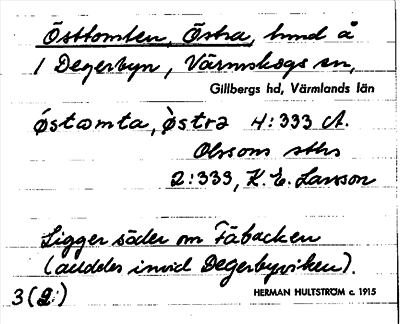 Östtomten, Östra, hmd å
1 Degerbyn, Värmskogs sn,
Gillbergs hd, Värmlands län
östomta, östra 4:333 A.
Olssons sths
2:333, K. E. Larsson
Ligger söder om Fäbacken
(alldeles invid Degerbyviken).
3(2:)
HERMAN HULTSTRÖM c. 1915